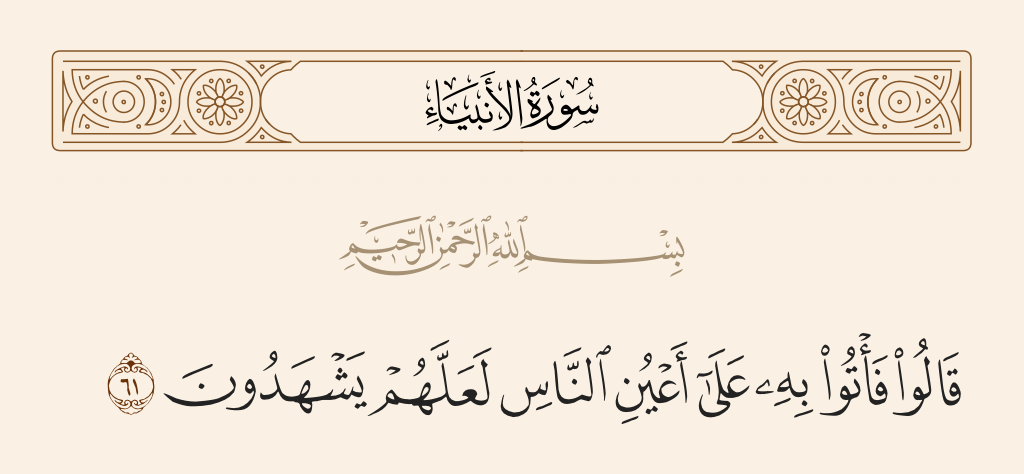 سُورَةُ الأَنبِيَاءِ
بِسْمِ ٱللَّهِ ٱلرَّحْمَٰنِ ٱلرَّحِيمِ
قَالُوا۟ فَأْتُوا۟ بِهِۦ عَلَىٰٓ أَعْيُنِ ٱلنَّاسِ لَعَلَّهُمْ يَشْهَدُونَ ٦١